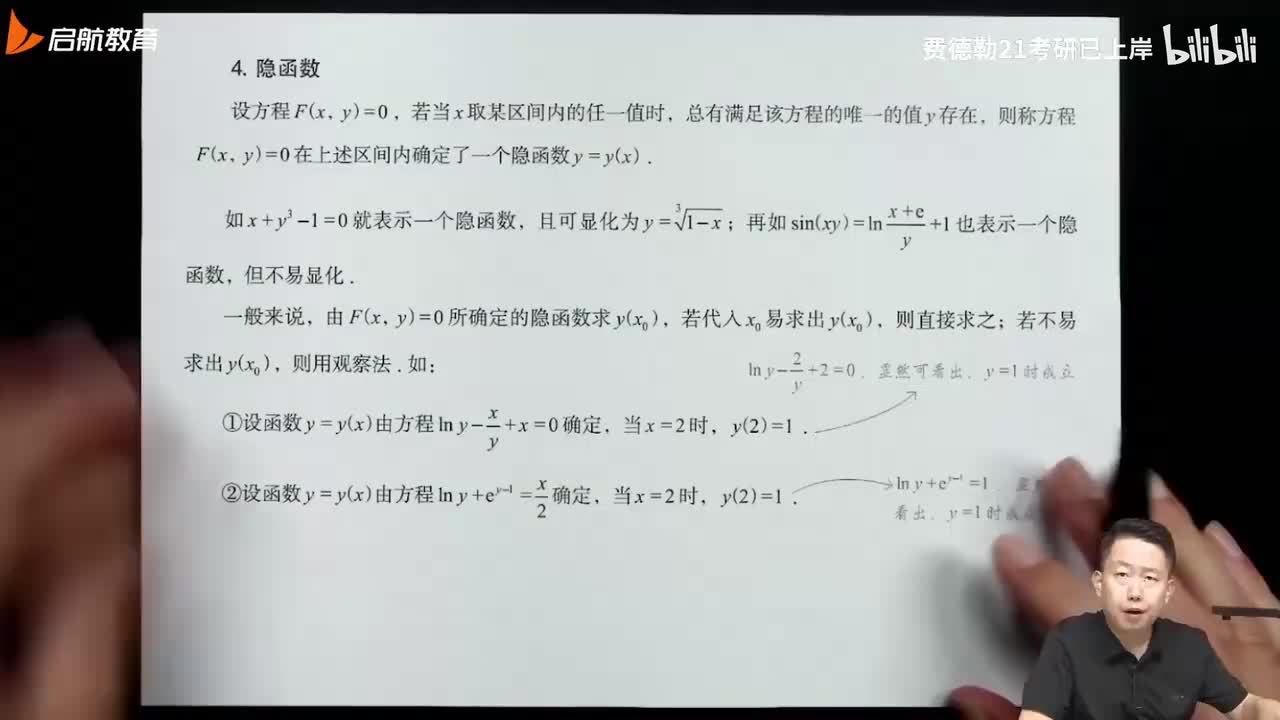 启航教育
费德勒21考研已上岸 bilibili
4. 隐函数
设方程 F(x, y)=0，若当 x 取某区间内的任一值时，总有满足该方程的唯一的值 y 存在，则称方程
F(x, y)=0 在上述区间内确定了一个隐函数 y=y(x).
如 x+y³-1=0 就表示一个隐函数，且可显化为 y=∛(1-x)；再如 sin(xy)=ln (x+e)/y +1 也表示一个隐
函数，但不易显化.
一般来说，由 F(x, y)=0 所确定的隐函数求 y(x₀)，若代入 x₀ 易求出 y(x₀)，则直接求之；若不易
求出 y(x₀)，则用观察法.如：
ln y - 2/y +2=0，显然可看出，y=1时成立
①设函数 y=y(x) 由方程 ln y - x/y + x=0 确定，当 x=2 时，y(2)=1.
②设函数 y=y(x) 由方程 ln y + e^(y-1) = x/2 确定，当 x=2 时，y(2)=1.
ln y + e^(y-1) =1，
看出，y=1时